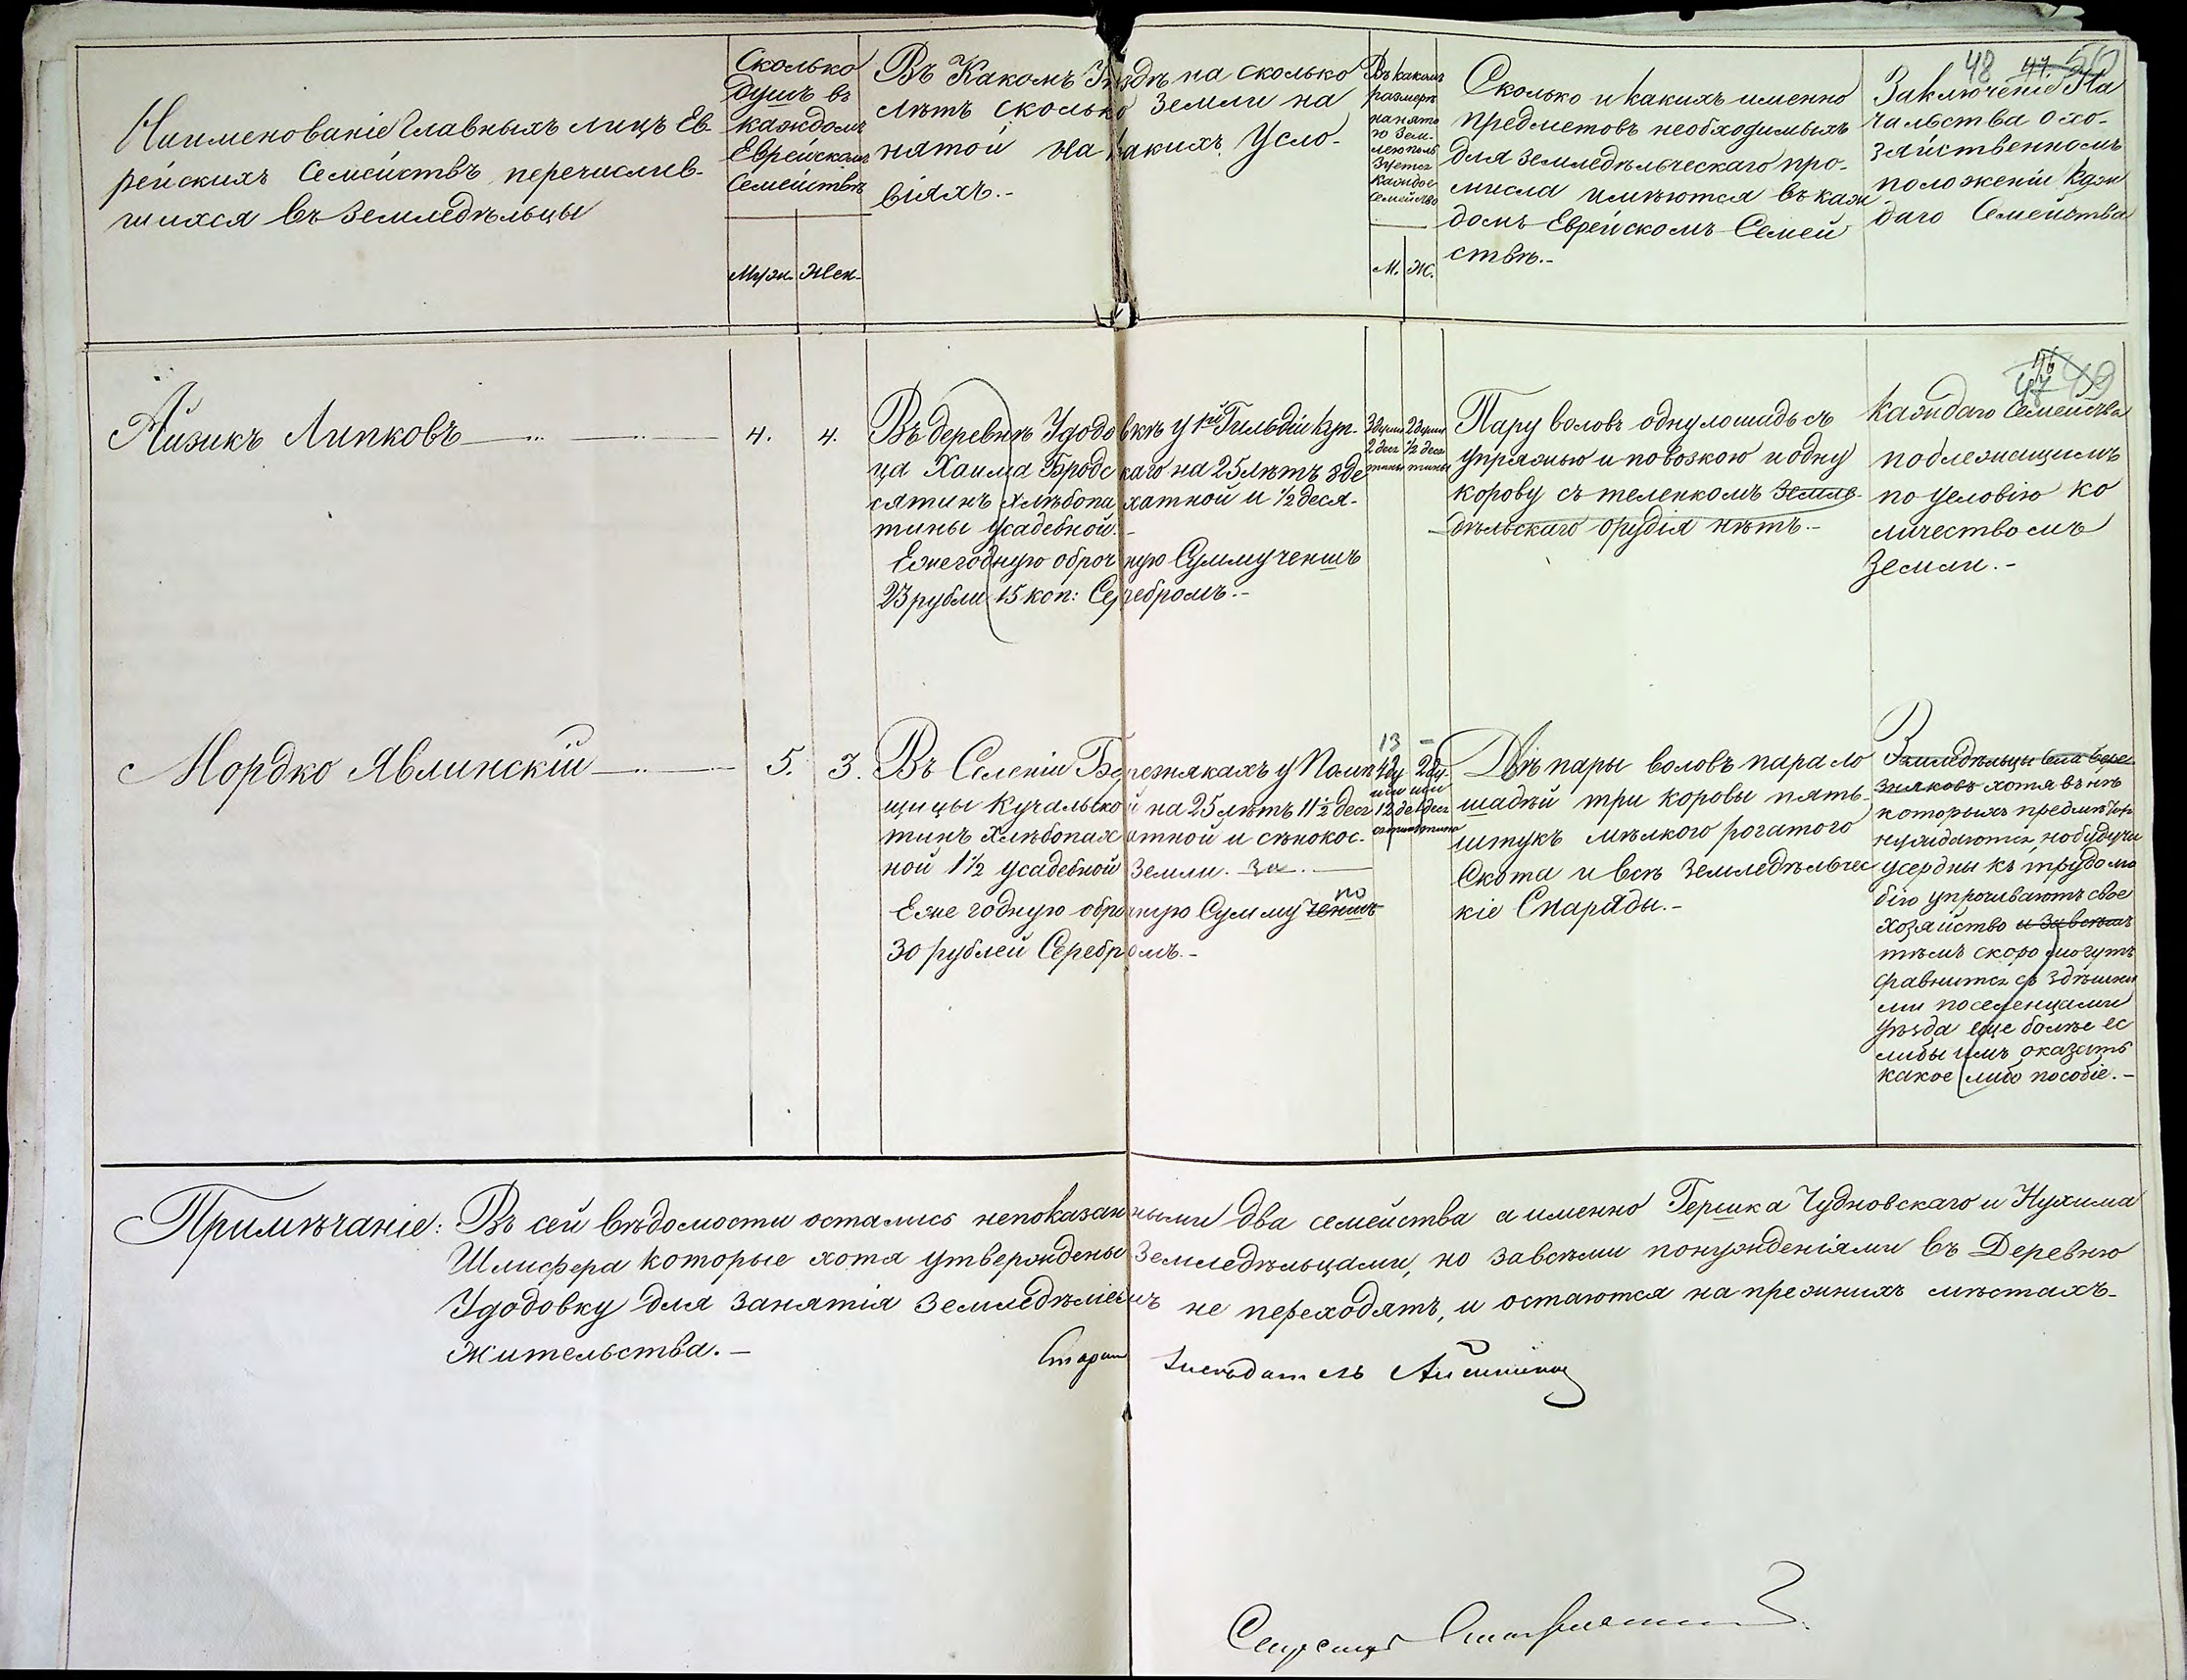 48 47. 50
Наименованіе Главныхъ лицъ Ев-
рейскихъ Семействъ перечислив-
шихся въ Земледѣльцы
Сколько
душъ въ
каждомъ
Еврейскомъ
Семействѣ
Муж. Жен.
Въ Какомъ Уѣздѣ на сколько
лѣтъ сколько Земли на
нятой на какихъ Усло-
віяхъ.-
Въ какомъ
размерѣ
нанято
ю Зем-
лею поль
зуется
каждое
семейство
М. Ж.
Сколько и какихъ именно
предметовъ необходимыхъ
для земледѣльческаго про-
мисла имѣются въ каж
домъ Еврейскомъ Семей
ствѣ.-
Заключеніе На
чальства о хо-
зяйственномъ
положеніи Каж
даго Семейства
Айзикъ Липковъ
4. 4.
Въ деревнѣ Удодовкѣ у 1й Гильдіи куп-
ца Хаима Бродскаго на 25 лѣтъ 8 де
сятинъ хлѣбопахатной и 1/2 деся-
тины усадебной.-
Ежегодную оброчную Сумму чиншъ
23 рубли 15 коп: Серебромъ.-
2 души
1/2 деся
тины
Пару воловъ одну лошадь съ
упряжью и повозкою и одну
корову съ теленкомъ Землѣ-
дѣльскаго орудія нѣтъ.-
49
Каждаго Семейства
подлежащимъ
по условію ко
личествомъ
Земли.-
Мордко Явлинскій
5. 3.
Въ Селеніи Березнякахъ у Помѣ
щицы Кучальской на 25 лѣтъ 11 1/2 деся
тинъ хлѣбопахатной и сѣнокос-
ной 1 1/2 усадебной Земли. за.
Ежегодную оброчную Сумму чиншъ по
30 рублей Серебромъ.-
13 -
Двѣ пары воловъ пара ло
шадѣй три коровы пять
штукъ мѣлкого рогатого
Скота и всѣ Земледѣльчес
кіе Снаряды.-
Земледѣльцы села Бере-
зняковъ хотя въ нѣ
которыхъ предмѣтахъ
нуждаются, но будучи
усердны къ трудолю
бію упрочиваютъ свое
хозяйство и за всѣмъ
тѣмъ скоро могутъ
сравнится съ здѣшни
ми поселенцами
уѣзда еще болѣе ес
либы имъ оказать
какое либо пособіе.-
Примѣчаніе: Въ сей вѣдомости остались непоказанными два семейства а именно Гершка Чудновскаго и Нухима
Шлифера которые хотя утверждены Земледѣльцами, но завсѣми понужденіями въ Деревню
Удодовку для занятія Земледѣліемъ не переходятъ, и остаются на прежнихъ мѣстахъ
жительства.-